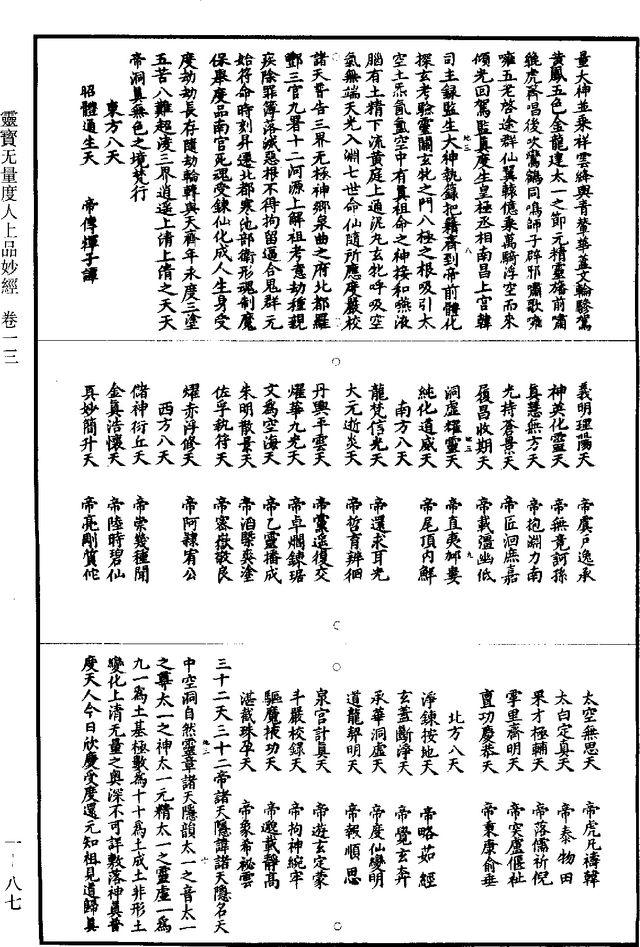 靈寶无量度人上品妙經 卷一三
一-八七
量大神並乘祥雲絳輿青輦華蓋文輪驂駕
黃鳳五色金龍建太一之節元精靈旛前嘯
毚虎齊唱後吹鸞鶴同鳴師子辟邪嘯歌嗈
嗈五老啓途群仙翼轅億乘萬騎浮空而來
傾光回駕監真度生皇極丞相南昌上宮韓
司主錄監生大神執籙把籍齋到帝前體化
探玄考驗靈關玄牝之門八極之根吸引太
空土炁氤氳空中有真祖命之神接和嚥液
腦有土精下流黃庭上通泥丸玄牝呼吸空
氣無端天光入淵七世命仙隨所應度嚴校
諸天普告三界无極神鄉泉曲之府北都羅
酆三官九署十二河源上解祖考億劫種親
疾除罪簿落滅惡根不得拘留逼合鬼群元
始符命時刻昇遷北都寒池部衛形魂制魔
保舉度品南宮死魂受鍊仙化成人生身受
度劫劫長存隨劫輪轉與天齊年永度三塗
五苦八難超淩三界逍遙上清上清之天天
帝洞真無色之境梵行
東方八天
昭體通生天 帝傅輝子譚
義明理陽天 帝虞戶逸承
神英化靈天 帝無竟訶孫
真慧無方天 帝抱淵力南
光持蒼景天 帝匠洄庶嘉
履昌收期天 帝載溫幽低
洞虛耀靈天 帝直夷邺婁
純化道威天 帝尾頂內鮮
南方八天
龍梵信光天 帝還求耳光
大元逝炎天 帝哲育辨徊
丹輿平雲天 帝䆃遙復交
燿華九光天 帝卓爛鍊琚
文為空海天 帝乙靈播成
朱明散景天 帝洎槩爽塗
佐孚執符天 帝密嶽敬良
燿赤浮脩天 帝阿隸宥公
西方八天
儲神衍丘天 帝崇幾種聞
金真浩懷天 帝陸時碧仙
真妙簡升天 帝亮剛質佗
太空無思天 帝虎凡禱韓
太白定真天 帝泰物田
果才極輔天 帝落儒祈倪
掌里齊明天 帝突盧偃祉
亶功慶恭天 帝東康俞垂
北方八天
淨鍊按地天 帝略茹經
玄蓋斷淨天 帝覺玄奔
承華洞虛天 帝度仙巒明
道龍契明天 帝報順思
泉宮計真天 帝遊玄定蒙
斗嚴校錄天 帝拘神綩牢
驅魔掖功天 帝邈載靜高
湛截珠孕天 帝象希秘雲
三十二天三十二帝諸天隱諱諸天隱名天
中空洞自然靈章諸天隱韻太一之音太一
之尊太一之神太一元精太一之靈虛一為
九一為土基極數為十十為土成土非形土
變化上清無量之奧深不可詳敷落神真普
度天人今日欣慶受度還元知祖見道歸真